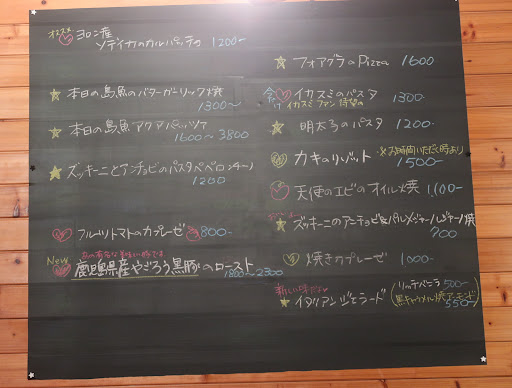 オススメ
ヨロン産
ソデイカのカルパッチョ 1200-
本日の島魚のバターガーリック焼
1300〜
本日の島魚アクアパッツァ
1600〜3800
ズッキーニとアンチョビのパスタペペロンチーノ
1200
フルーツトマトのカプレーゼ 800-
New
鹿児島県産やごろう黒豚のロースト
1800〜2300
フォアグラのPizza 1600
今だけ イカスミのパスタ 1300-
イカスミファン待望の
明太子のパスタ 1200-
カキのリゾット ※お時間いただく時あり
1500-
天使のエビのオイル焼 1,100-
ズッキーニのアンチョビ&パルメジャーノレジャーノ焼
700
焼きカプレーゼ 1000-
新しい味だよ
イタリアンジェラード
リッチバニラ 500-
黒キャラメル焼アーモンド
550-